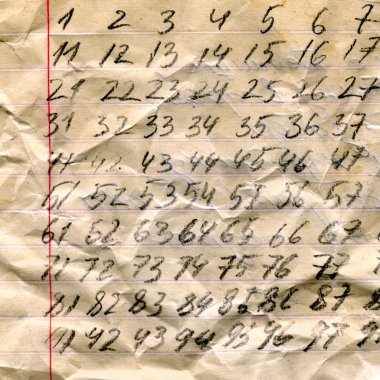 1 2 3 4 5 6 7
11 12 13 14 15 16 17
21 22 23 24 25 26 27
31 32 33 34 35 36 37
41 42 43 44 45 46 47
51 52 53 54 55 56 57
61 62 63 64 65 66 67
71 72 73 74 75 76 77 7
81 82 83 84 85 86 87 8
91 92 93 94 95 96 97 9